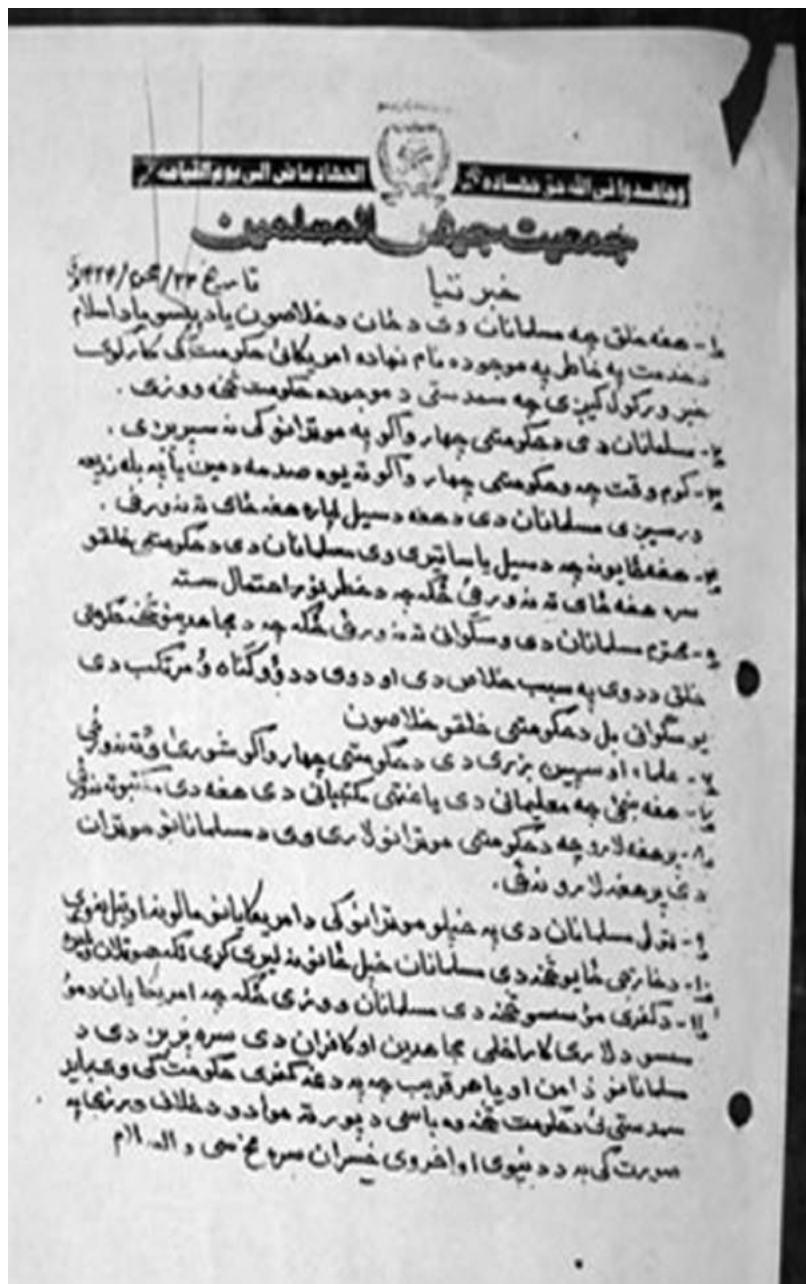 وجاهدوا في الله حق جهاده الجهاد ماض الى يوم القيامة
جمعيت جيش المسلمين
خبرتيا تاريخ ۲۳/ /۱۴۲۴
۱- هغه خلق چه مسلمانان وی دځان دخلاصون یا دپیسو یا داسلام
دخدمت په خاطر په موجوده نام نهاده امریکائی حکومت کی کار کوی
خبر ورکول کیږی چه سمدستی د موجوده حکومت څخه ووزی .
۲- مسلمانان دی دحکومتی چهار واکو په موټرانو کی نه سپریږی .
۳- کوم وقت چه وحکومتی چهار واکو ته یوه صدمه دمین یا په بله ذریعه
ورسیږی مسلمانان دی دهغه دسیل لپاره هغه ځای ته نه ورځی .
۴- هغه ځایونه چه دسیل یا ساتیری وی مسلمانان دی دحکومتی خلقو
سره هغه ځای ته نه ورځی ځکه چه دخطر احتمال سته
۵- محترم مسلمانان دی وسګوان ته نه ورځی ځکه چه د مجاهدینو څخه حکومتی
خلق ددوی په سبب خلاص دی او دوی ددؤو ګناه ؤ مرتکب دی
یو سګوانی بل دحکومتی خلقو خلاصون
۶- علماء او سپین ږیری دی دحکومتی چهار واکو شوریٰ ؤ ته نه ورځی
۷- هغه ښځی چه معلیمانی دی یا غټی مکتبیانی دی هغه دی مکتبو ته نه ورځی
۸- پر هغه لارو چه دحکومتی موټرانو لاری وی د مسلمانانو موټران
دی پر هغه لارو نه ځی .
۹- ټول مسلمانان دی په خپلو موټرانو کی د امریکایانو مالونه او تیل نه وړی
۱۰- دخارجی ځایو څخه دی مسلمانان خپل ځانونه لیری کړی
۱۱- دکفری مؤسسو څخه دی مسلمانان ووزی ځکه چه امریکایان دمؤ
سسو د لاری کار اخلی مجاهدین او کافران دی سره بریښ دی د
مسلمانانو د امن او یا هر قریب چه په دغه کفری حکومت کی وی باید
سمدستی ئی دحکومت څخه وباسی د پورته موادو دخلاف ورزی په
صورت کی به د دنیوی او اخروی خسران سره مخ سی والسلام